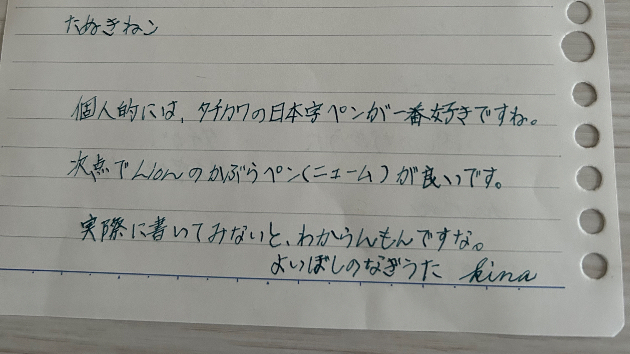 たぬきねこ
個人的には、タチカワの日本字ペンが一番好きですね。
次点でLionのかぶらペン(ニューム)が良いです。
実際に書いてみないと、わからんもんですな。
よいぼしのなぎうた kina